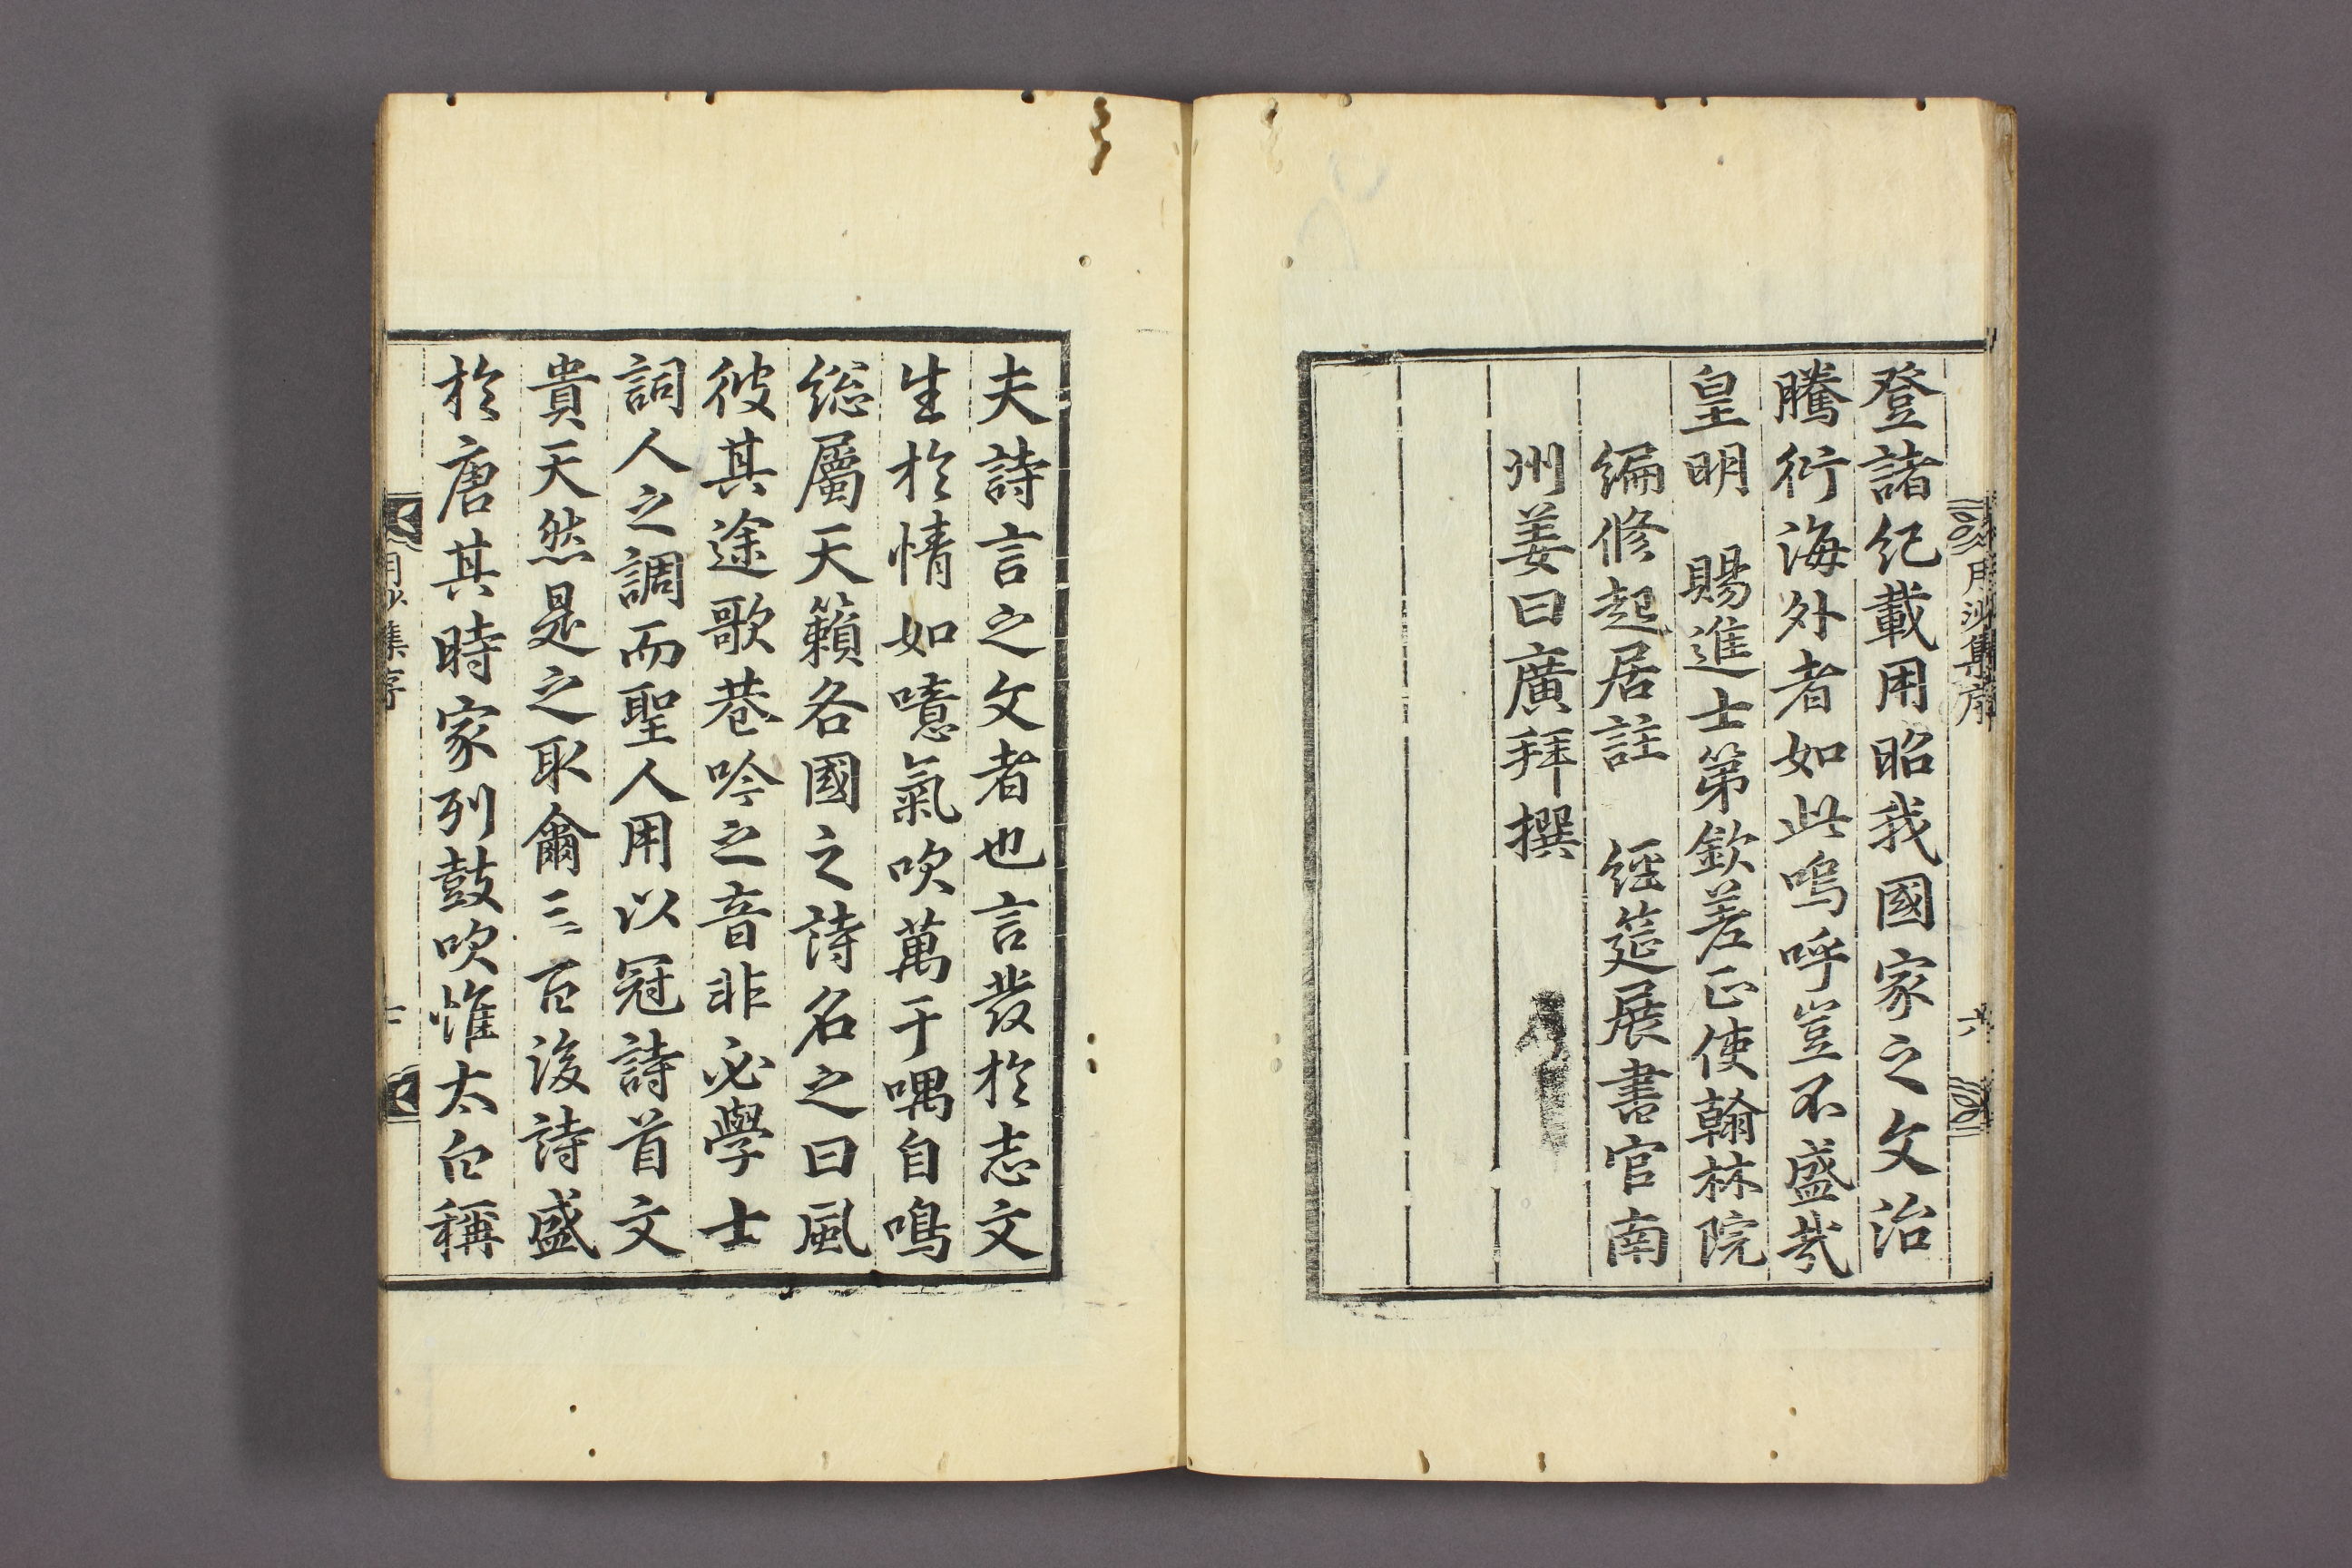 月沙集序
六
登諸紀載用昭我國家之文治
騰衍海外者如此嗚呼豈不盛哉
皇明 賜進士第欽差正使翰林院
編修起居註 經筵展書官南
州姜曰廣拜撰
夫詩言之文者也言發於志文
生於情如噫氣吹萬于喁自鳴
総屬天籟各國之詩名之曰風
彼其途歌巷吟之音非必學士
詞人之調而聖人用以冠詩首文
貴天然是之取爾三百後詩盛
於唐其時家列鼓吹惟太白稱
月沙集序
七